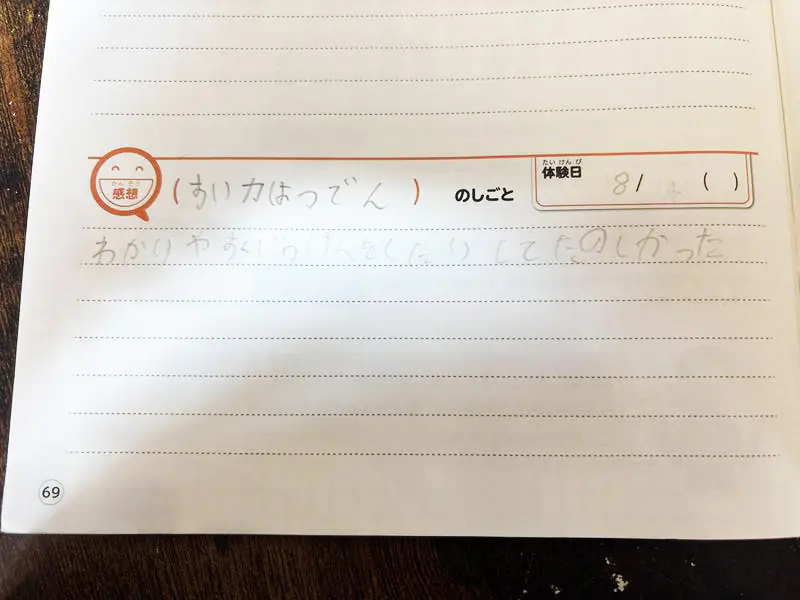 かんそう
感想
(すい力はつでん) のしごと
たいけんび
体験日 8/ ( )
わかりやすくじっけんをしたりしてたのしかった
69